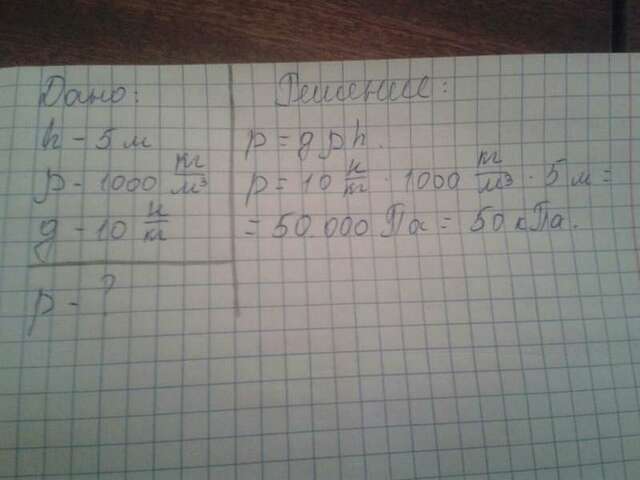 Дано:
h - 5 м
ρ - 1000 кг/м³
g - 10 н/кг
p - ?
Решение:
p = g ρ h.
p = 10 н/кг · 1000 кг/м³ · 5 м =
= 50.000 Па = 50 кПа.